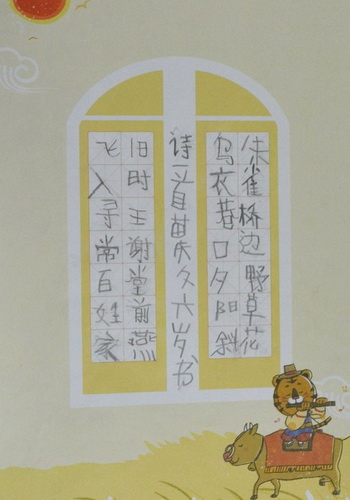 朱雀桥边野草花
乌衣巷口夕阳斜
诗一首苗庆久六岁书
旧时王谢堂前燕
飞入寻常百姓家